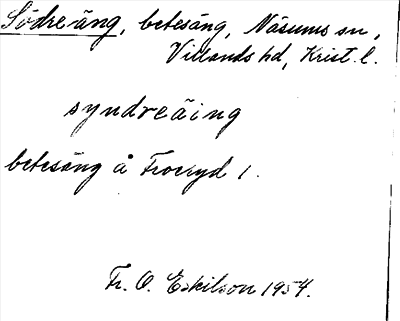 Södreäng, betesäng, Näsums sn,
Villands hd, Krist. l.
syndreäing
betesäng å Froeryd 1.
Fr. O. Eskilson 1954.